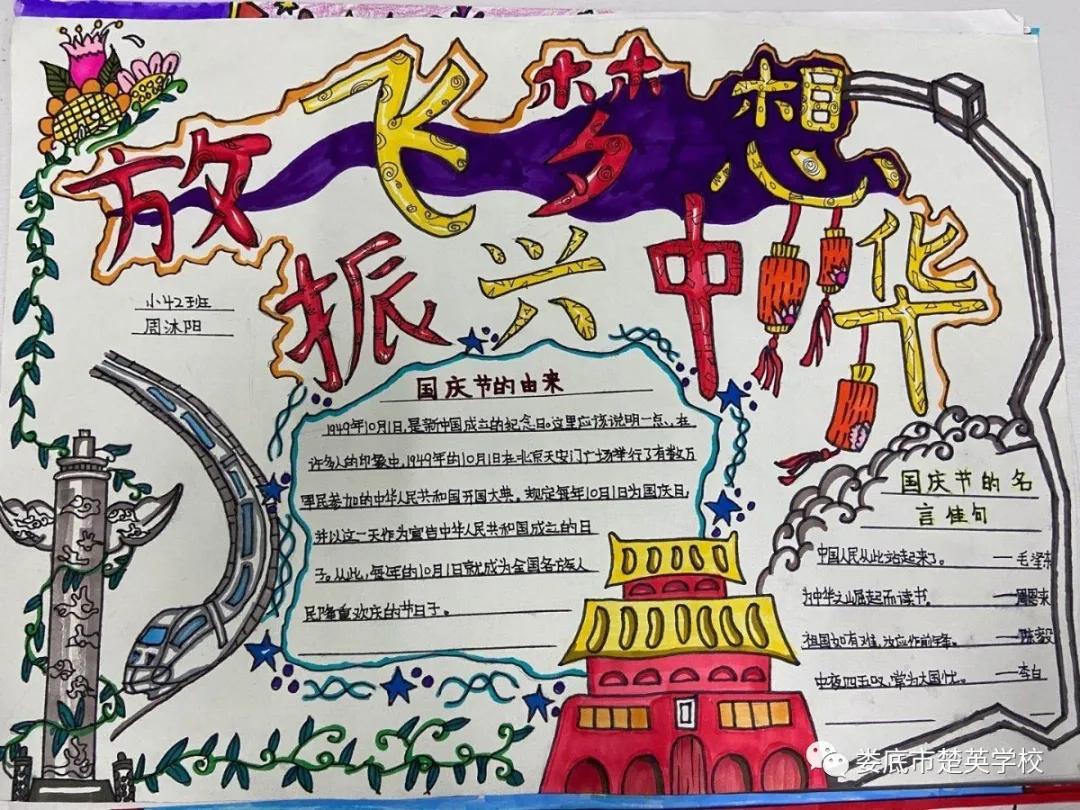 放飞梦想
振兴中华
小42班
周沐阳
国庆节的由来
1949年10月1日,是新中国成立的纪念日。这里应该说明一点、在
许多人的印象中,1949年的10月1日在北京天安门广场举行了有数万
军民参加的中华人民共和国开国大典。规定每年10月1日为国庆日,
并以这一天作为宣告中华人民共和国成立的日
子。从此,每年的10月1日就成为全国各族人
民隆重欢庆的节日子。
国庆节的名
言佳句
中国人民从此站起来了。 —毛泽东
为中华之崛起而读书。 —周恩来
祖国如有难,汝应作前锋。 —陈毅
中夜四五叹,常为大国忧。 —李白
娄底市楚英学校